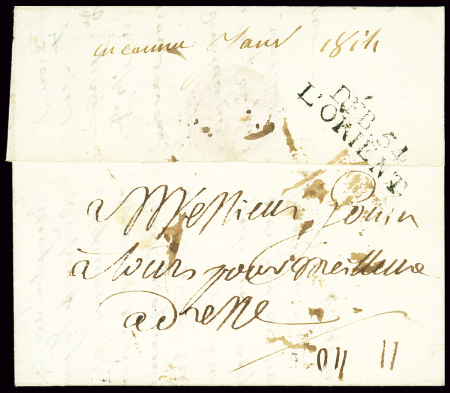 inconnu Janv 1814
DÉB. 54
L'ORIENT
a Messieurs Gouin
à tours pour meilleure
adresse